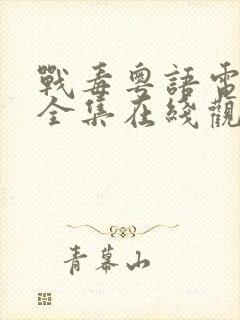 戰毒粵語電
全集在綫觀
青幕山